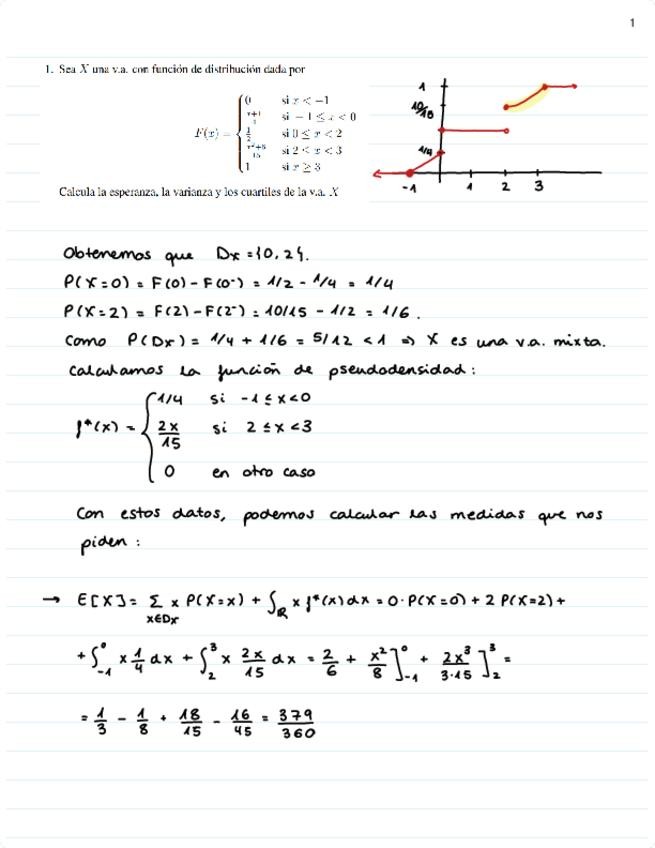 1
1. Sea X una v.a. con función de distribución dada por
F(x) = { 0 si x < −1
x+1/4 si −1 ≤ x < 0
1/2 si 0 ≤ x < 2
x²+6/15 si 2 ≤ x < 3
1 si x ≥ 3
1
10/15
1/4
-1 1 2 3
Calcula la esperanza, la varianza y los cuartiles de la v.a. X
Obtenemos que Dx = {0, 2}.
P(X=0) = F(0) - F(0⁻) = 1/2 - 1/4 = 1/4
P(X=2) = F(2) - F(2⁻) = 10/15 - 1/2 = 1/6.
Como P(Dx) = 1/4 + 1/6 = 5/12 < 1 ⇒ X es una v.a. mixta.
Calculamos la función de pseudodensidad:
f*(x) = { 1/4 si -1 ≤ x < 0
2x/15 si 2 ≤ x < 3
0 en otro caso
Con estos datos, podemos calcular las medidas que nos
piden:
→ E[X] = Σ x∈Dx x P(X=x) + ∫R x f*(x) dx = 0 · P(X=0) + 2 P(X=2) +
+ ∫₋₁⁰ x 1/4 dx + ∫₂³ x 2x/15 dx = 2/6 + x²/8 ]₋₁⁰ + 2x³/3·15 ]₂³ =
= 1/3 - 1/8 + 18/15 - 16/45 = 379/360